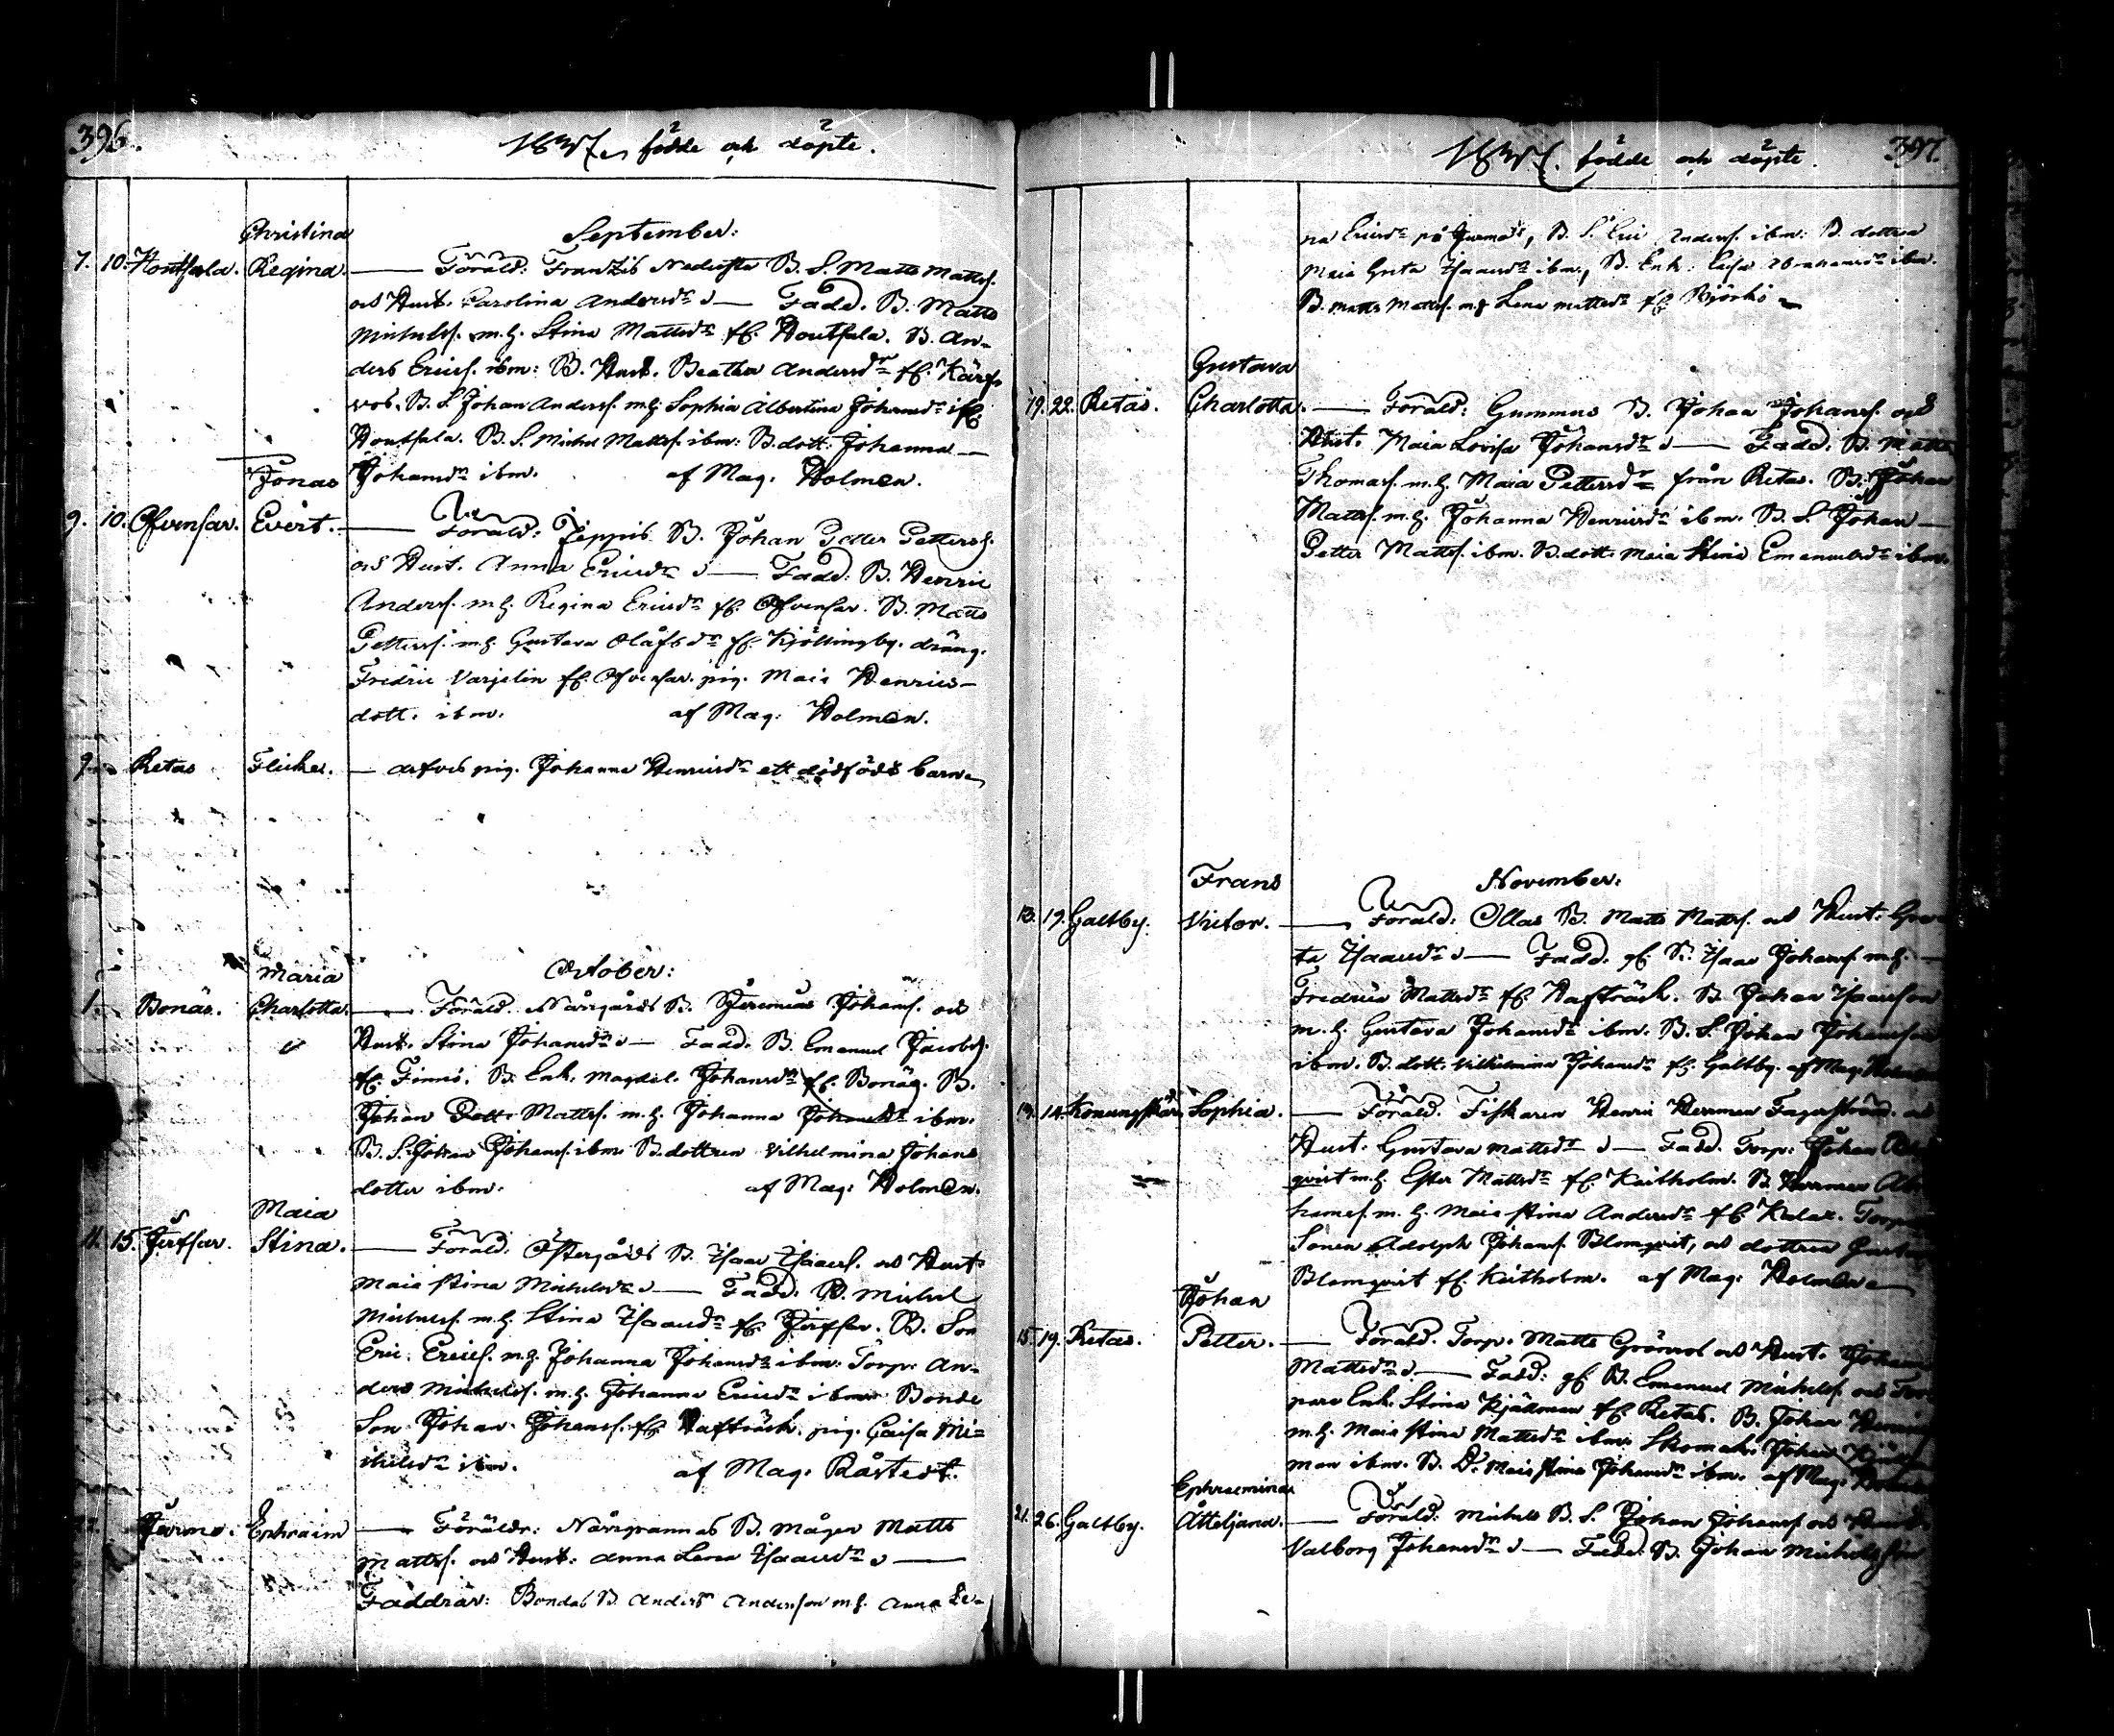 396.
1837 födde och döpte.
September:
Christina
7. 10. Hontsala. Regina. — Föräld: Frantzis Nedergta B. S. Matts Mattss.
och Hust. Carolina Andersdr — Fadd. B. Matts
Michelss. m.h. Stina Mattsdr fr. Hontsala. B. An-
ders Ericss. ibm: B. Hust. Beatha Andersdr fr. Kärf-
vos. B. S. Johan Anderss. m.h. Sophia Albertina Johansdr fr.
Hontsala. B. S. Michel Mattss. ibm: B. dott. Johanna
Johansdr ibm. af Mag. Holmén.
Jonas
9. 10. Ofvensar. Evert. — Föräld: Jeppis B. Johan Petter Petterss.
och Hust. Anna Ericsdr — Fadd: B. Henric
Anderss. m.h. Regina Ericsdr fr. Ofvensar. B. Matts
Petterss. m.h. Gustava Olåfsdr fr. Kjöttingby. dräng.
Fredric Varjelin fr. Ofvensar. pig. Maia Henrics-
dott. ibm. af Mag: Holmén.
9. Retas Flicka. — afvid pig. Johanna Henricsdr ett dödfödt barn
October:
Maria
1. Bonäs. Charlotta. — Föräld. Norrgårds B. Jeremias Johanss. och
Hust. Stina Johansdr — Fadd. B. Emanuel Jacobss.
fr. Finnö. B. Enk. Magdal. Johansdr fr. Bonäs. B.
Johan Pett. Mattss. m.h. Johanna Johansdr ibm.
B. S. Johan Johanss. ibm B. dottren Vilhelmina Johans
dotter ibm. af Mag: Holmén.
Maia
11. 15. Jerfsar. Stina. — Föräld. Östergårds B. Isaac Isaacss. och Hust.
Maia Stina Michelsdr — Fadd: B. Michel
Michelss. m.h. Stina Isaacsdr fr. Jerfsar. B. Son
Eric. Ericss. m.h. Johanna Johansdr ibm: Torp. An-
ders Michelss. m.h. Johanna Ericsdr ibm Bonde
Son Johan Johanss. fr. Hafträsk. pig. Caisa Mi-
chelsdr ibm. af Mag. Råstedt.
Jurmo. Ephraim — Föräldr: Norrgrannas B. Mågen Matts
Mattss. och Hust: Anna Lena Isaacsdr —
Faddrar: Bondas B. Anders Andersson m.h. Anna Le-
1837. födde och döpte. 397.
na Ericsdr på Jurmo, B. S. Eric Anderss. ibm: B. dottren
Maia Greta Isaacsdr ibm, B. Enk: Caisa Abrahamsdr ibm.
B. Matts Mattss. m.h. Lena Mattsdr fr. Björkö
Gustava
19. 22. Retas. Charlotta. — Föräld: Gummus B. Johan Johanss. och
Hust. Maia Lovisa Johansdr — Fadd. B. Matts
Thomass. m.h. Maia Pettersdr från Retas. B. Johan
Mattss. m.h. Johanna Henricsdr ibm. B. S. Johan
Petter Mattss. ibm. B. dott. Maia Stina Emanuelsdr ibm.
November:
Frans
13. 19. Galtby. Victor. — Föräld: Ollas B. Matts Mattss. och Hust. Gre-
ta Isaacsdr — Fadd. gf. B. Isaac Johanss. m.h.
Fredrica Mattsdr fr. Hafträsk. B. Johan Isaacsson
m.h. Gustava Johansdr ibm. B. S. Johan Johansson
ibm. B. dott. Vilhelmina Johansdr fr. Galtby. af Mag. Holmén
14. Konungskär Sophia. — Föräld. Fiskaren Henric Herrman Fagerström. och
Hust. Gustava Mattsdr — Fadd. Torp. Johan
qvist m.h. Ester Mattsdr fr. Keitholm. B. Herrman Ab-
hamss. m.h. Maia Stina Andersdr fr. Torp
Sonen Adolph Johanss. Blomqvist, och dottren
Blomqvist fr. Keitholm. af Mag: Holmén
Johan
15. 19. Retas. Petter. — Föräld. Torp. Matts Grönros och Hust. Johanna
Mattsdr — Fadd: gf. B. Emanuel Michelss. och Tor-
pare Enk. Stina Kjällman fr. Retas. B. Johan
m.h. Maia Stina Mattsdr ibm Skomak. Johan
man ibm. B. D. Maia Stina Johansdr ibm. af Mag.
Ephraemina
21. 26. Galtby. Åtteljana. — Föräld: Michels B. S. Johan Johanss. och
Valborg Johansdr — Fadd. B. Johan Michelsson